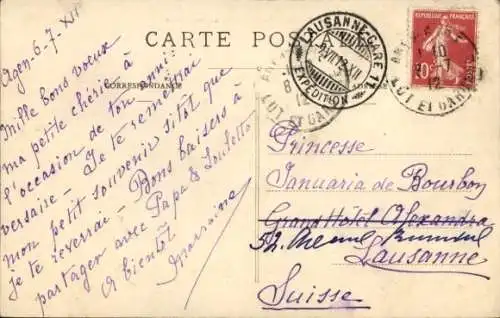 CARTE POSTALE
CORRESPONDANCE
Agen-6-7-XII
Mille bons vœux
ma petite chérie à
l'occasion de ton anni-
versaire - Je te remettrai
mon petit souvenir sitôt que
je te reverrai - Bons baisers à
partager avec Papa &
A bientôt
marraine
LAUSANNE-GARE
EXPEDITION
LOT ET GARONNE
REPUBLIQUE FRANÇAISE
10
LOT ET GAR
Princesse
Januaria de Bourbon
Grand Hôtel Alexandra
52.
Lausanne
Suisse